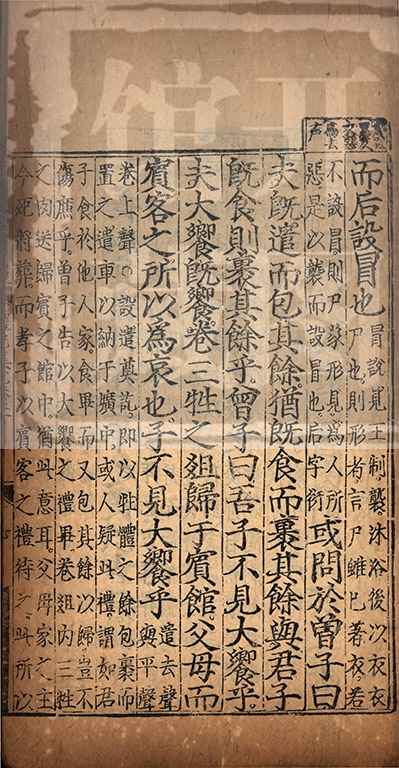 而后設冒也
冒說見王制襲沐浴後以衣衣
尸也則形者言尸雖已著衣若
不設冒則尸象形見為人所
惡是以襲而設冒也后字衍
或問於曾子曰
夫既遣而包其餘猶既食而裹其餘與君子
既食則裹其餘乎曾子曰吾子不見大饗乎
夫大饗既饗卷三牲之俎歸于賓館父母而
賓客之所以為哀也子不見大饗乎
遣去聲
與平聲
卷上聲○設遣奠訖即以牲體之餘包裹而
置之遣車以納于壙中或人疑此禮謂如君
子食於他人家食畢而又包其餘以歸豈不
傷廉乎曾子告以大饗之禮畢卷俎内三牲
之肉送歸賓之館中猶此意耳父母家之主
今死將葬而孝子以賓客之禮待之此所以